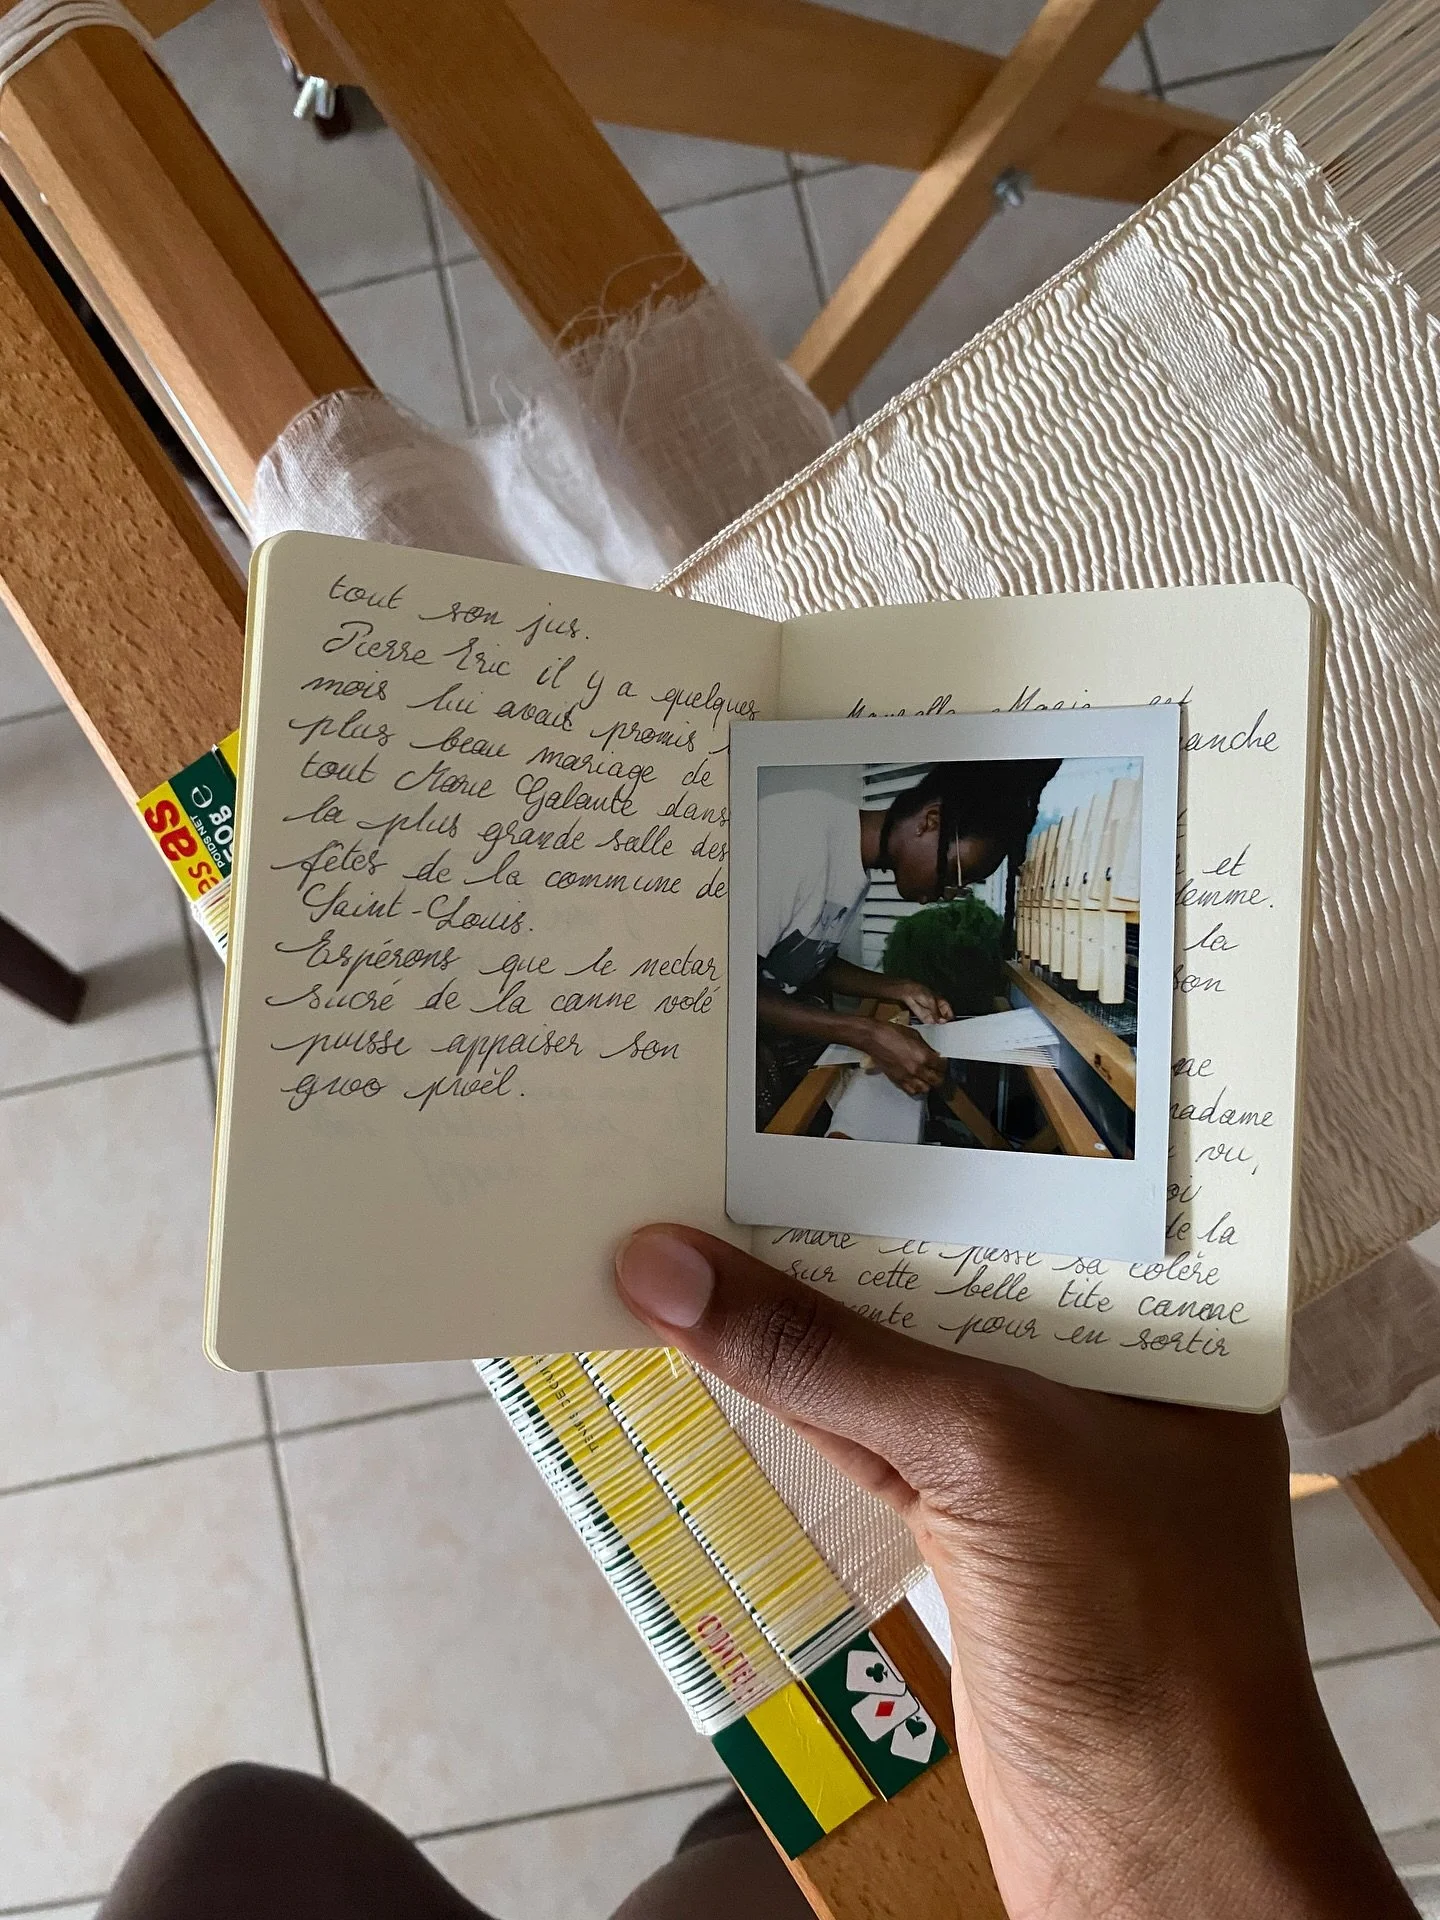 tout son jus.
Pierre Eric il y a quelques
mois lui avait promis
plus beau mariage de
tout Marie Galante dans
la plus grande salle des
fêtes de la commune de
Saint-Louis.
Espérons que le nectar
sucré de la canne volé
puisse appaiser son
gwo pwèl.
Marie est
anche
et
femme.
la
son
madame
vu,
de la
mare et passe sa colère
sur cette belle tite canne
pour en sortir
as
POIDS NET
e